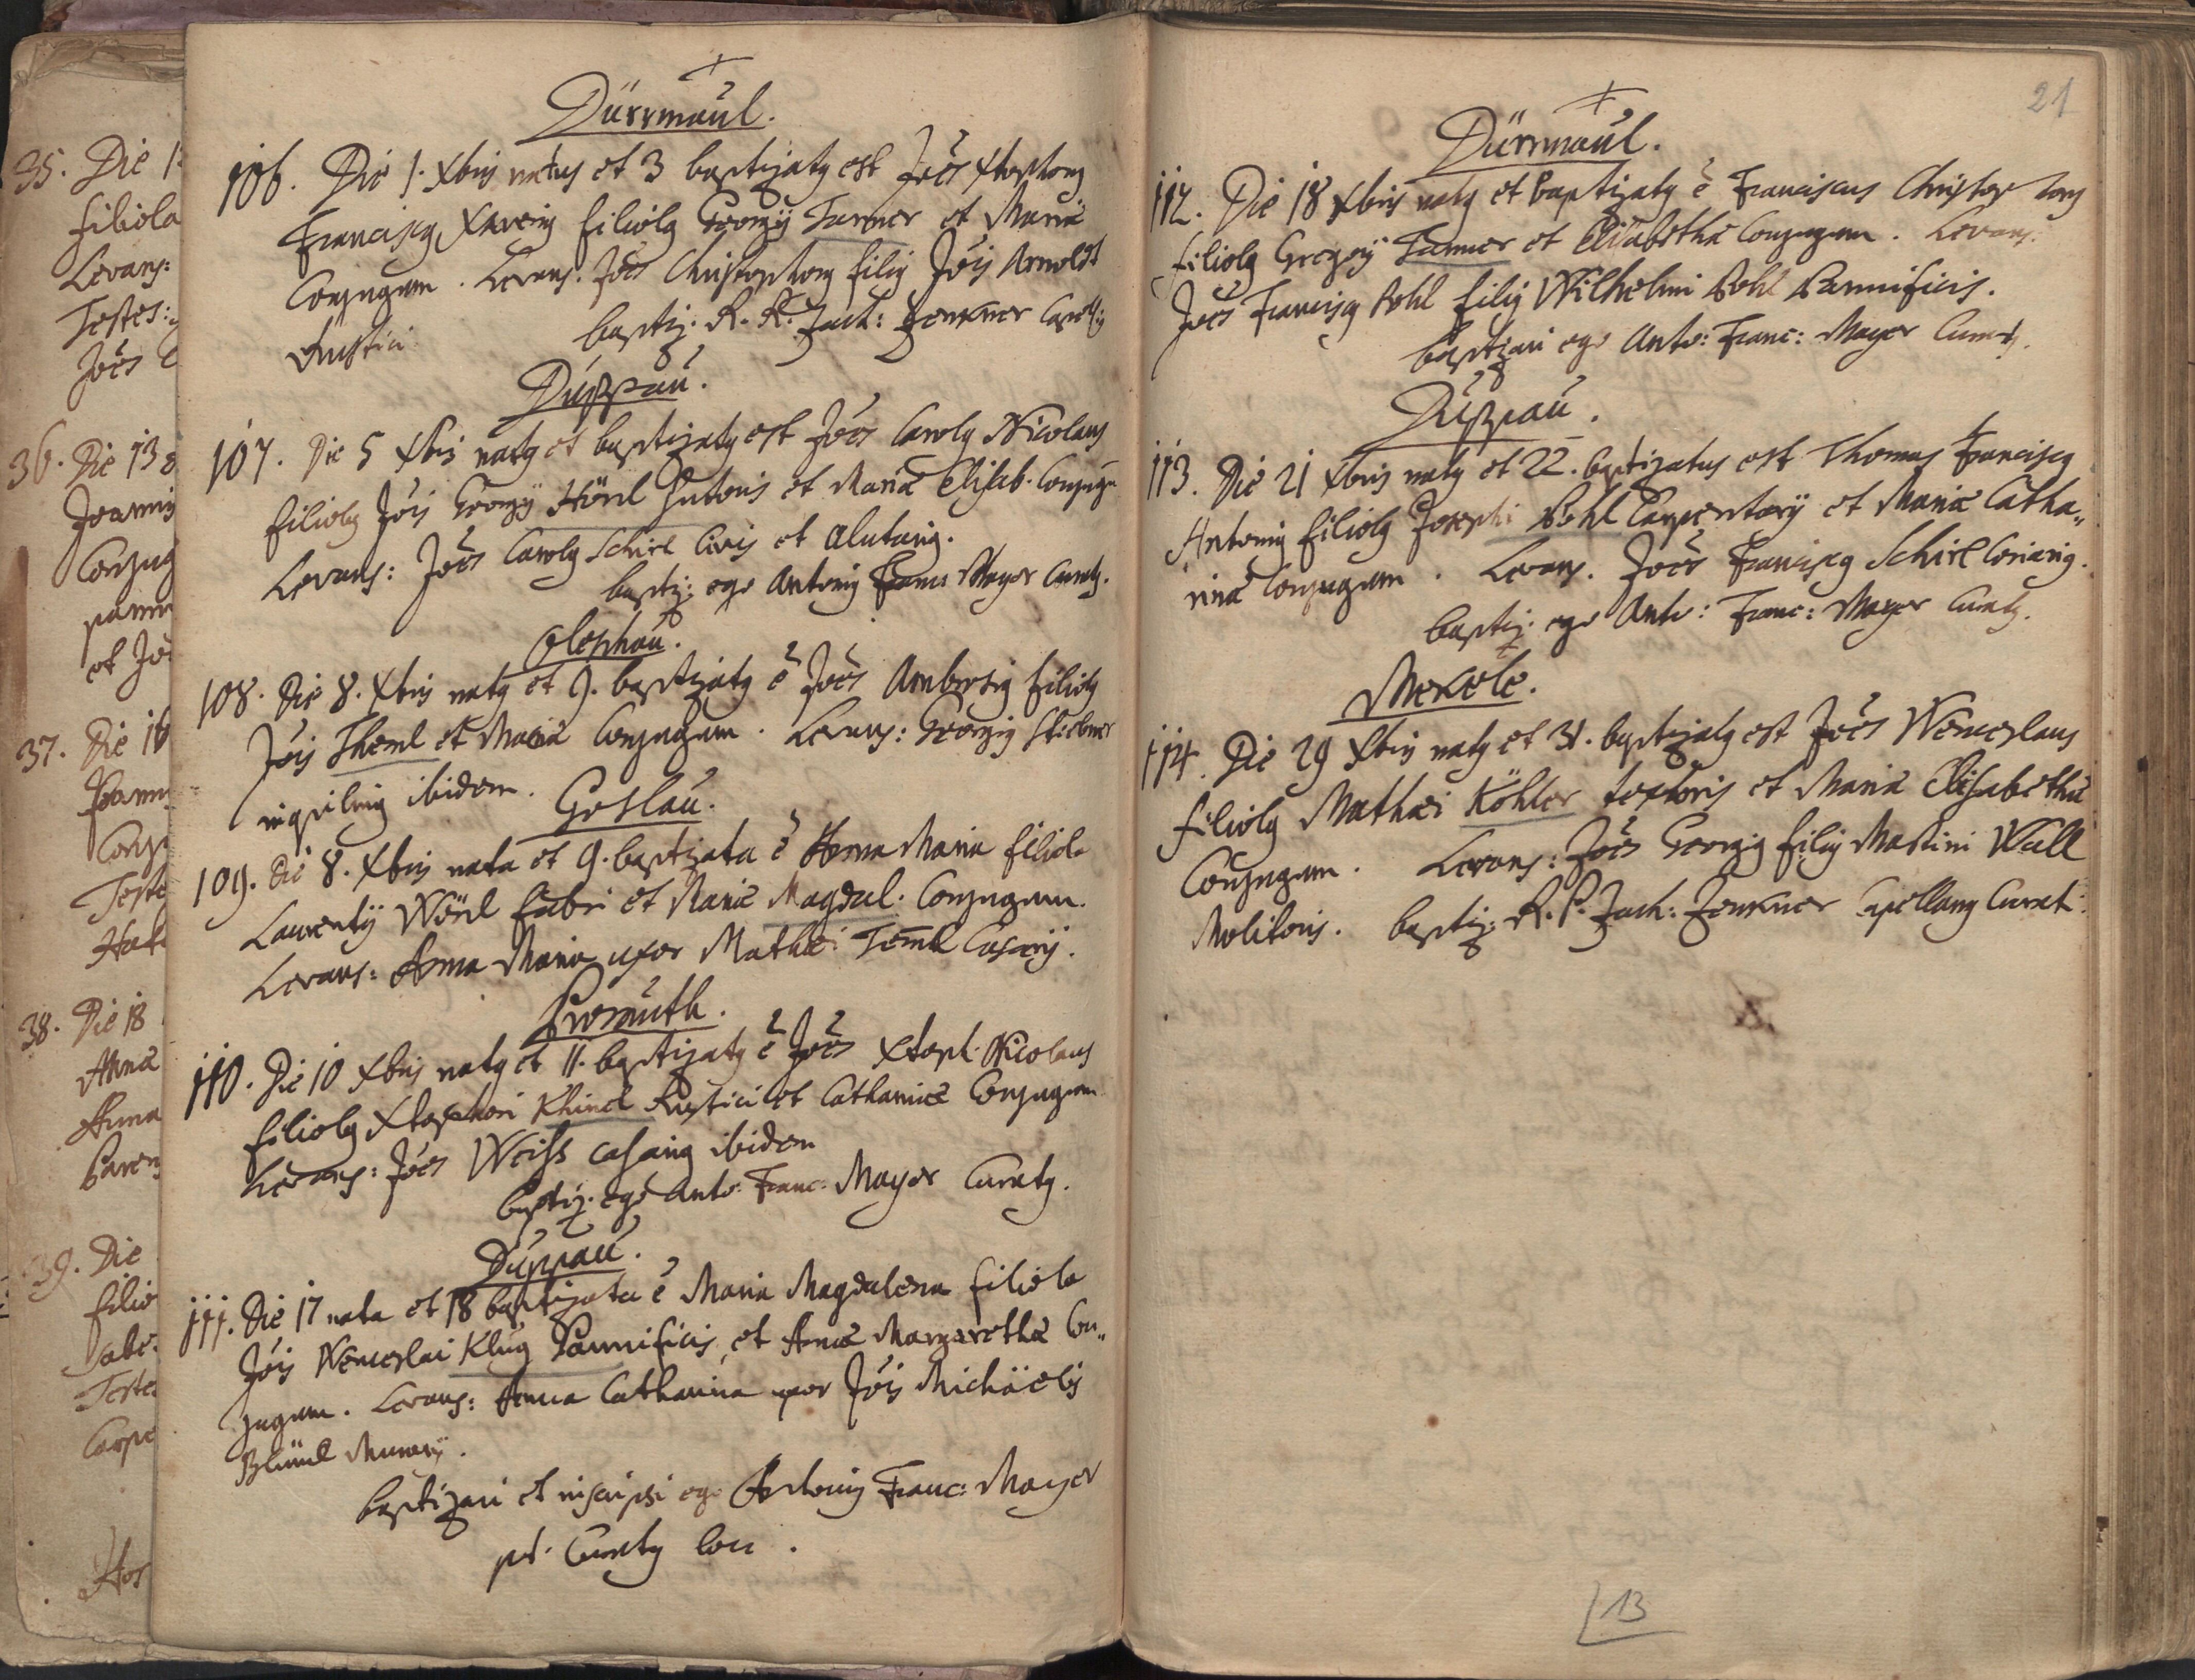 35. Die 1
filiola
Levans:
Testes:
Joes
36. Die 13
Joannis
Conjug
pann
et Jo
37. Die 16
Joann
Conju
Teste
38. Die 18
Anna
Anna
39. Die
filio
Testes
Carpe
Dürrmaul.
106. Die 1. Xbris natus et 3 baptizatg est Joes Xtophorg
Franciscg Xaverig filiolg Georgij Tanner et Mariæ
Conjugum. Levans. Joes Christophorg filig Jois Arnoldt
Rustici. baptiz. R. P. Zach: Zenkner Capellg
Duppau.
107. Die 5 Xbris natg et baptizatg est Joes Carolg Nicolaus
filiolg Jois Georgij Hörl Sutoris et Mariæ Elisab. Conjugū
Levans: Joes Carolg Schirl Civis et Alutarig.
baptiz: ego Antonig Franc: Mayer Curatg.
Olephau.
108. Die 8. Xbris natg et 9. baptizatg ē Joes Ambrosig filiolg
Jois Theml et Mariæ Conjugum. Levans: Georgig
inquilinig ibidem.
Goslau.
109. Die 8. Xbris nata et 9. baptizata ē Anna Maria filiola
Laurentij Wörl fabri et Mariæ Magdal. Conjugum.
Levans: Anna Maria uxor Mathæi Teml Casarij.
Promuth.
110. Die 10 Xbris natg et 11. baptizatg ē Joes Xtoph. Nicolaus
filiolg Xtophori Khindl Rustici et Catharinæ Conjugum
Levans: Joes Weiss casarig ibidem
baptiz. ego Anto: Franc: Mayer Curatg.
Duppau.
111. Die 17 nata et 18 baptizata ē Maria Magdalena filiola
Jois Wenceslai Klug Pannificis, et Annæ Margarethæ Con„
jugum. Levans: Anna Catharina uxor Jois Michäelis
Blüml Murarij.
baptizavi et inscripsi ego Antonig Franc: Mayer
pt. Curatg loci.
21
Dürrmaul.
112. Die 18 Xbris natg et baptizatg ē Franciscus Christophorg
filiolg Gregorij Tanner et Elisabethæ Conjugum. Levans:
Joes Franciscg Pohl filig Wilhelmi Pohl Pannificis.
baptizavi ego Anto: Franc: Mayer Curatg.
Duppau.
113. Die 21 Xbris natg et 22. baptizatus est Thomas Franciscg
Antonig filiolg Josephi Pohl Carpentarij et Mariæ Catha„
rinæ Conjugum. Levans. Joes Franciscg Schirl Coriarig.
baptiz: ego Anto: Franc: Mayer Curatg.
Mekele.
114. Die 29 Xbris natg et 31. baptizatg est Joes Wenceslaus
filiolg Mathæi Köhler textoris et Mariæ Elisabethæ
Conjugum. Levans: Joes Georgig filig Martini Wall
Molitoris. baptiz: R. P. Zach: Zenkner Capellang Curat:
13